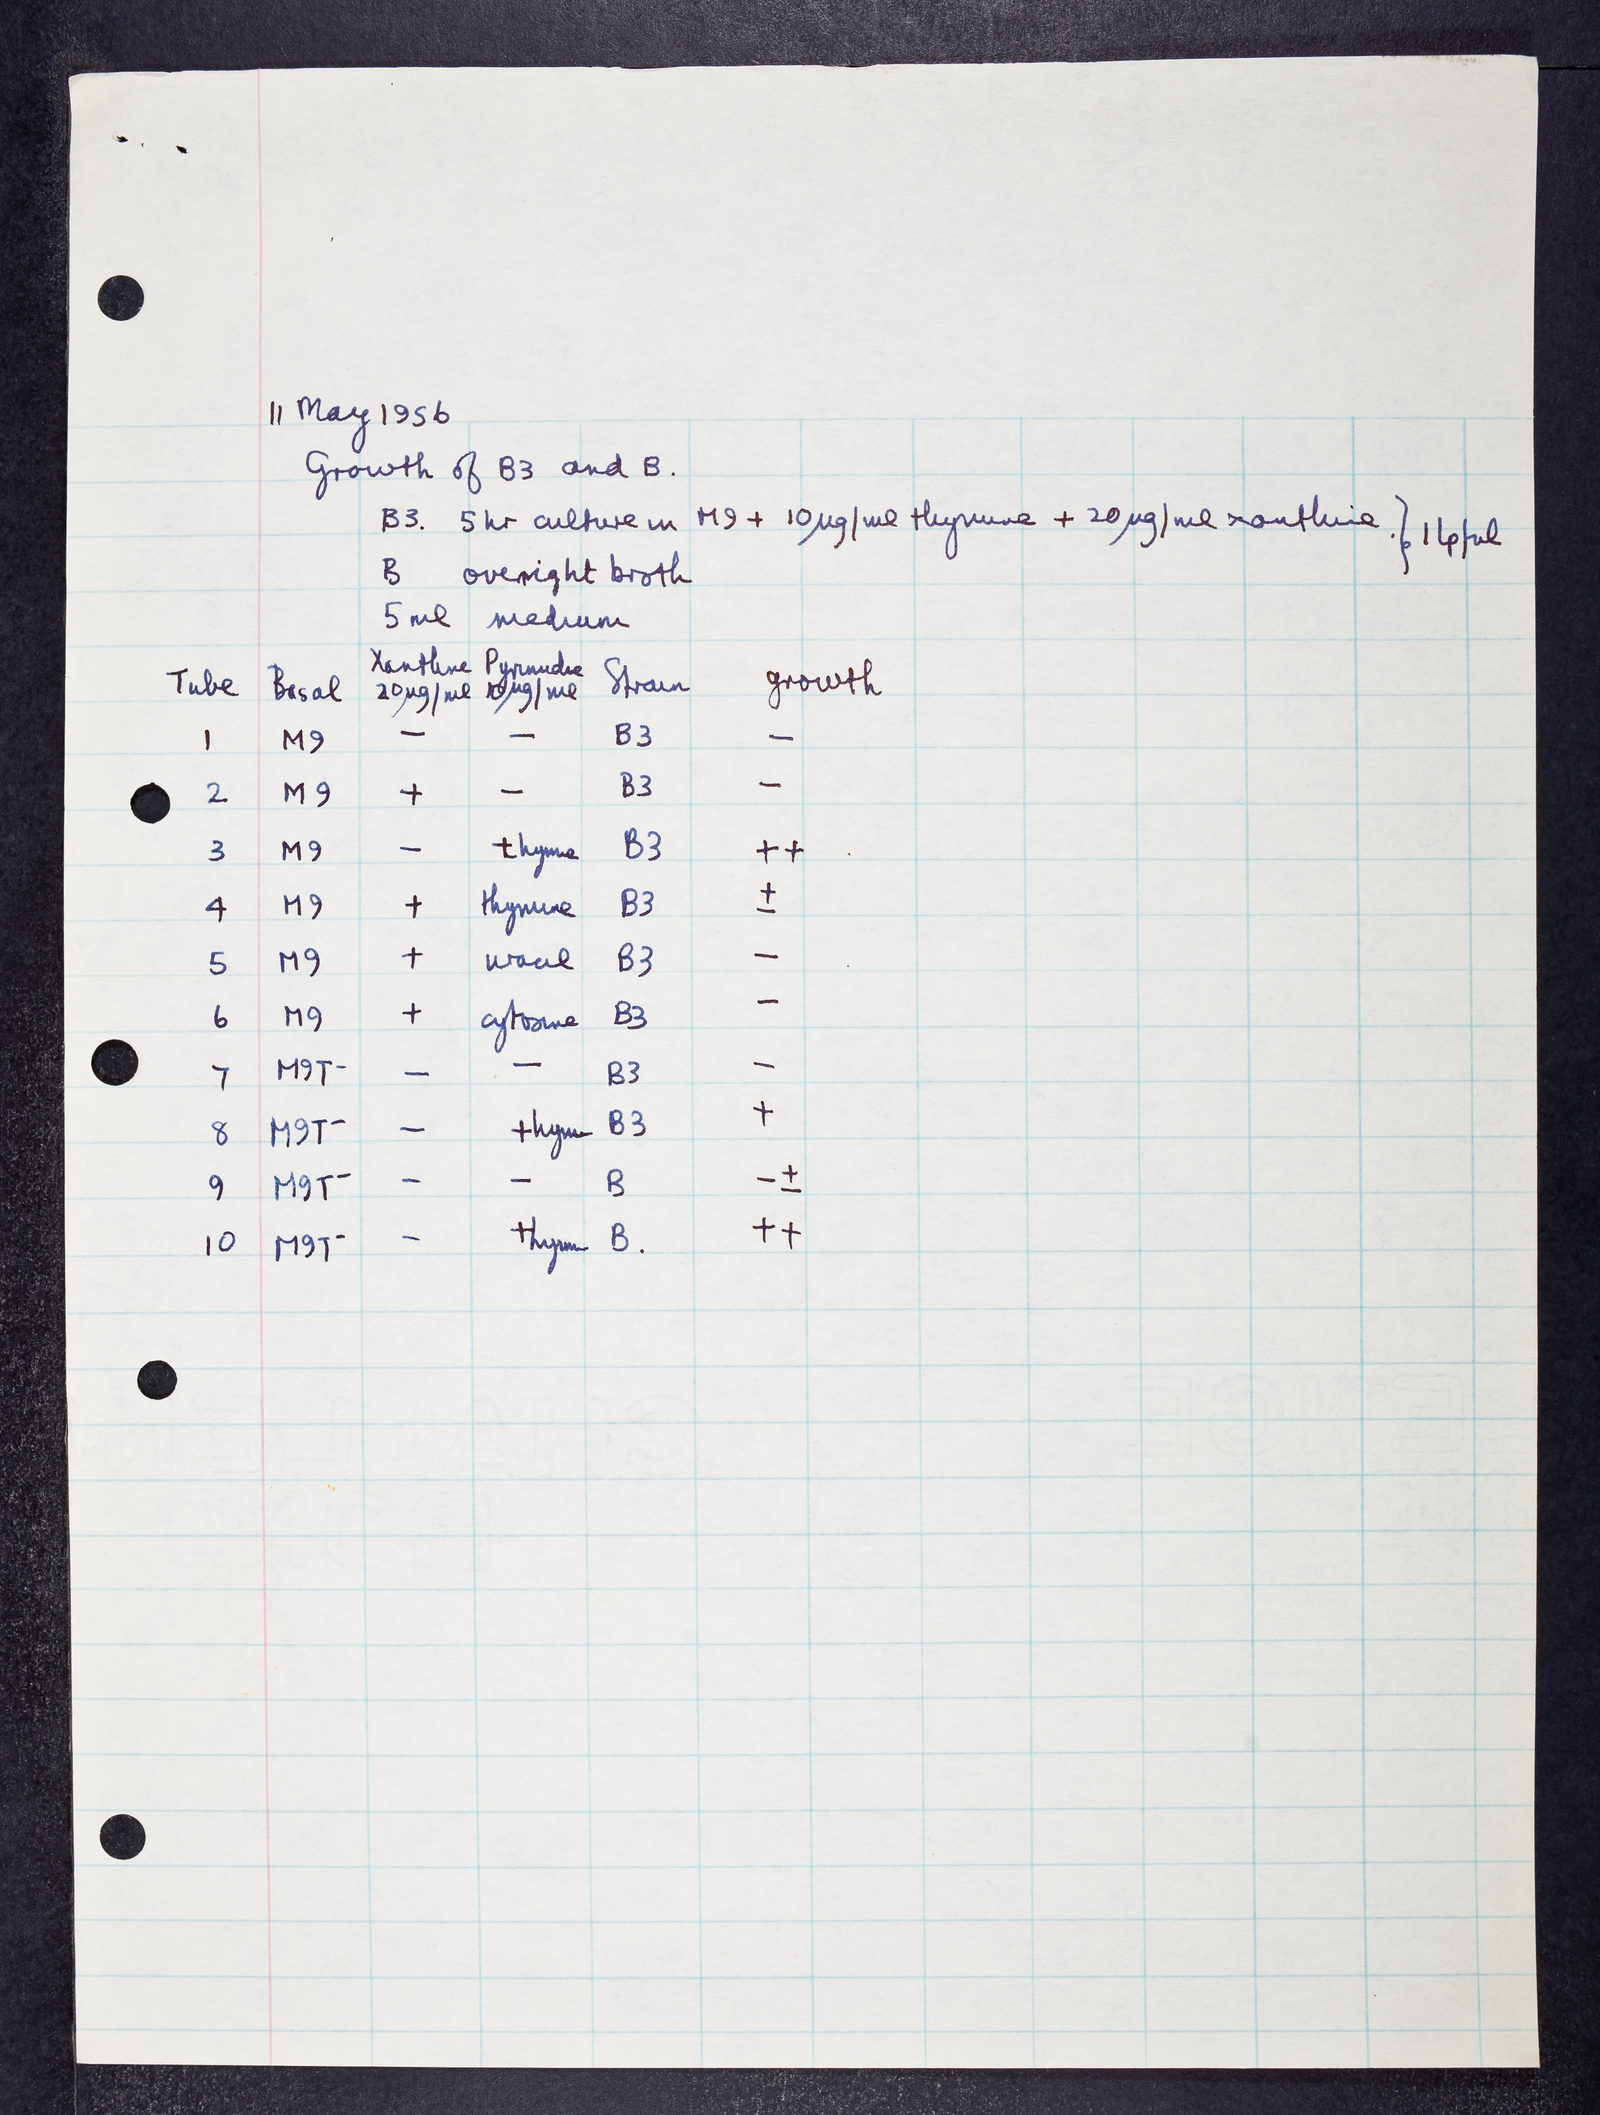 11 May 1956
Growth of B3 and B.
B3. 5 hr culture in M9 + 10 µg/ml thymine + 20 µg/ml xanthine. } 1 lpful
B overnight broth
5 ml medium
Tube Basal Xanthine 20 µg/ml Pyrimidine 10 µg/ml Strain growth
1 M9 − − B3 −
2 M9 + − B3 −
3 M9 − thyme B3 ++
4 M9 + thymine B3 ±
5 M9 + uracil B3 −
6 M9 + cytosine B3 −
7 M9T− − − B3 −
8 M9T− − thym B3 +
9 M9T− − − B −±
10 M9T− − thym B. ++